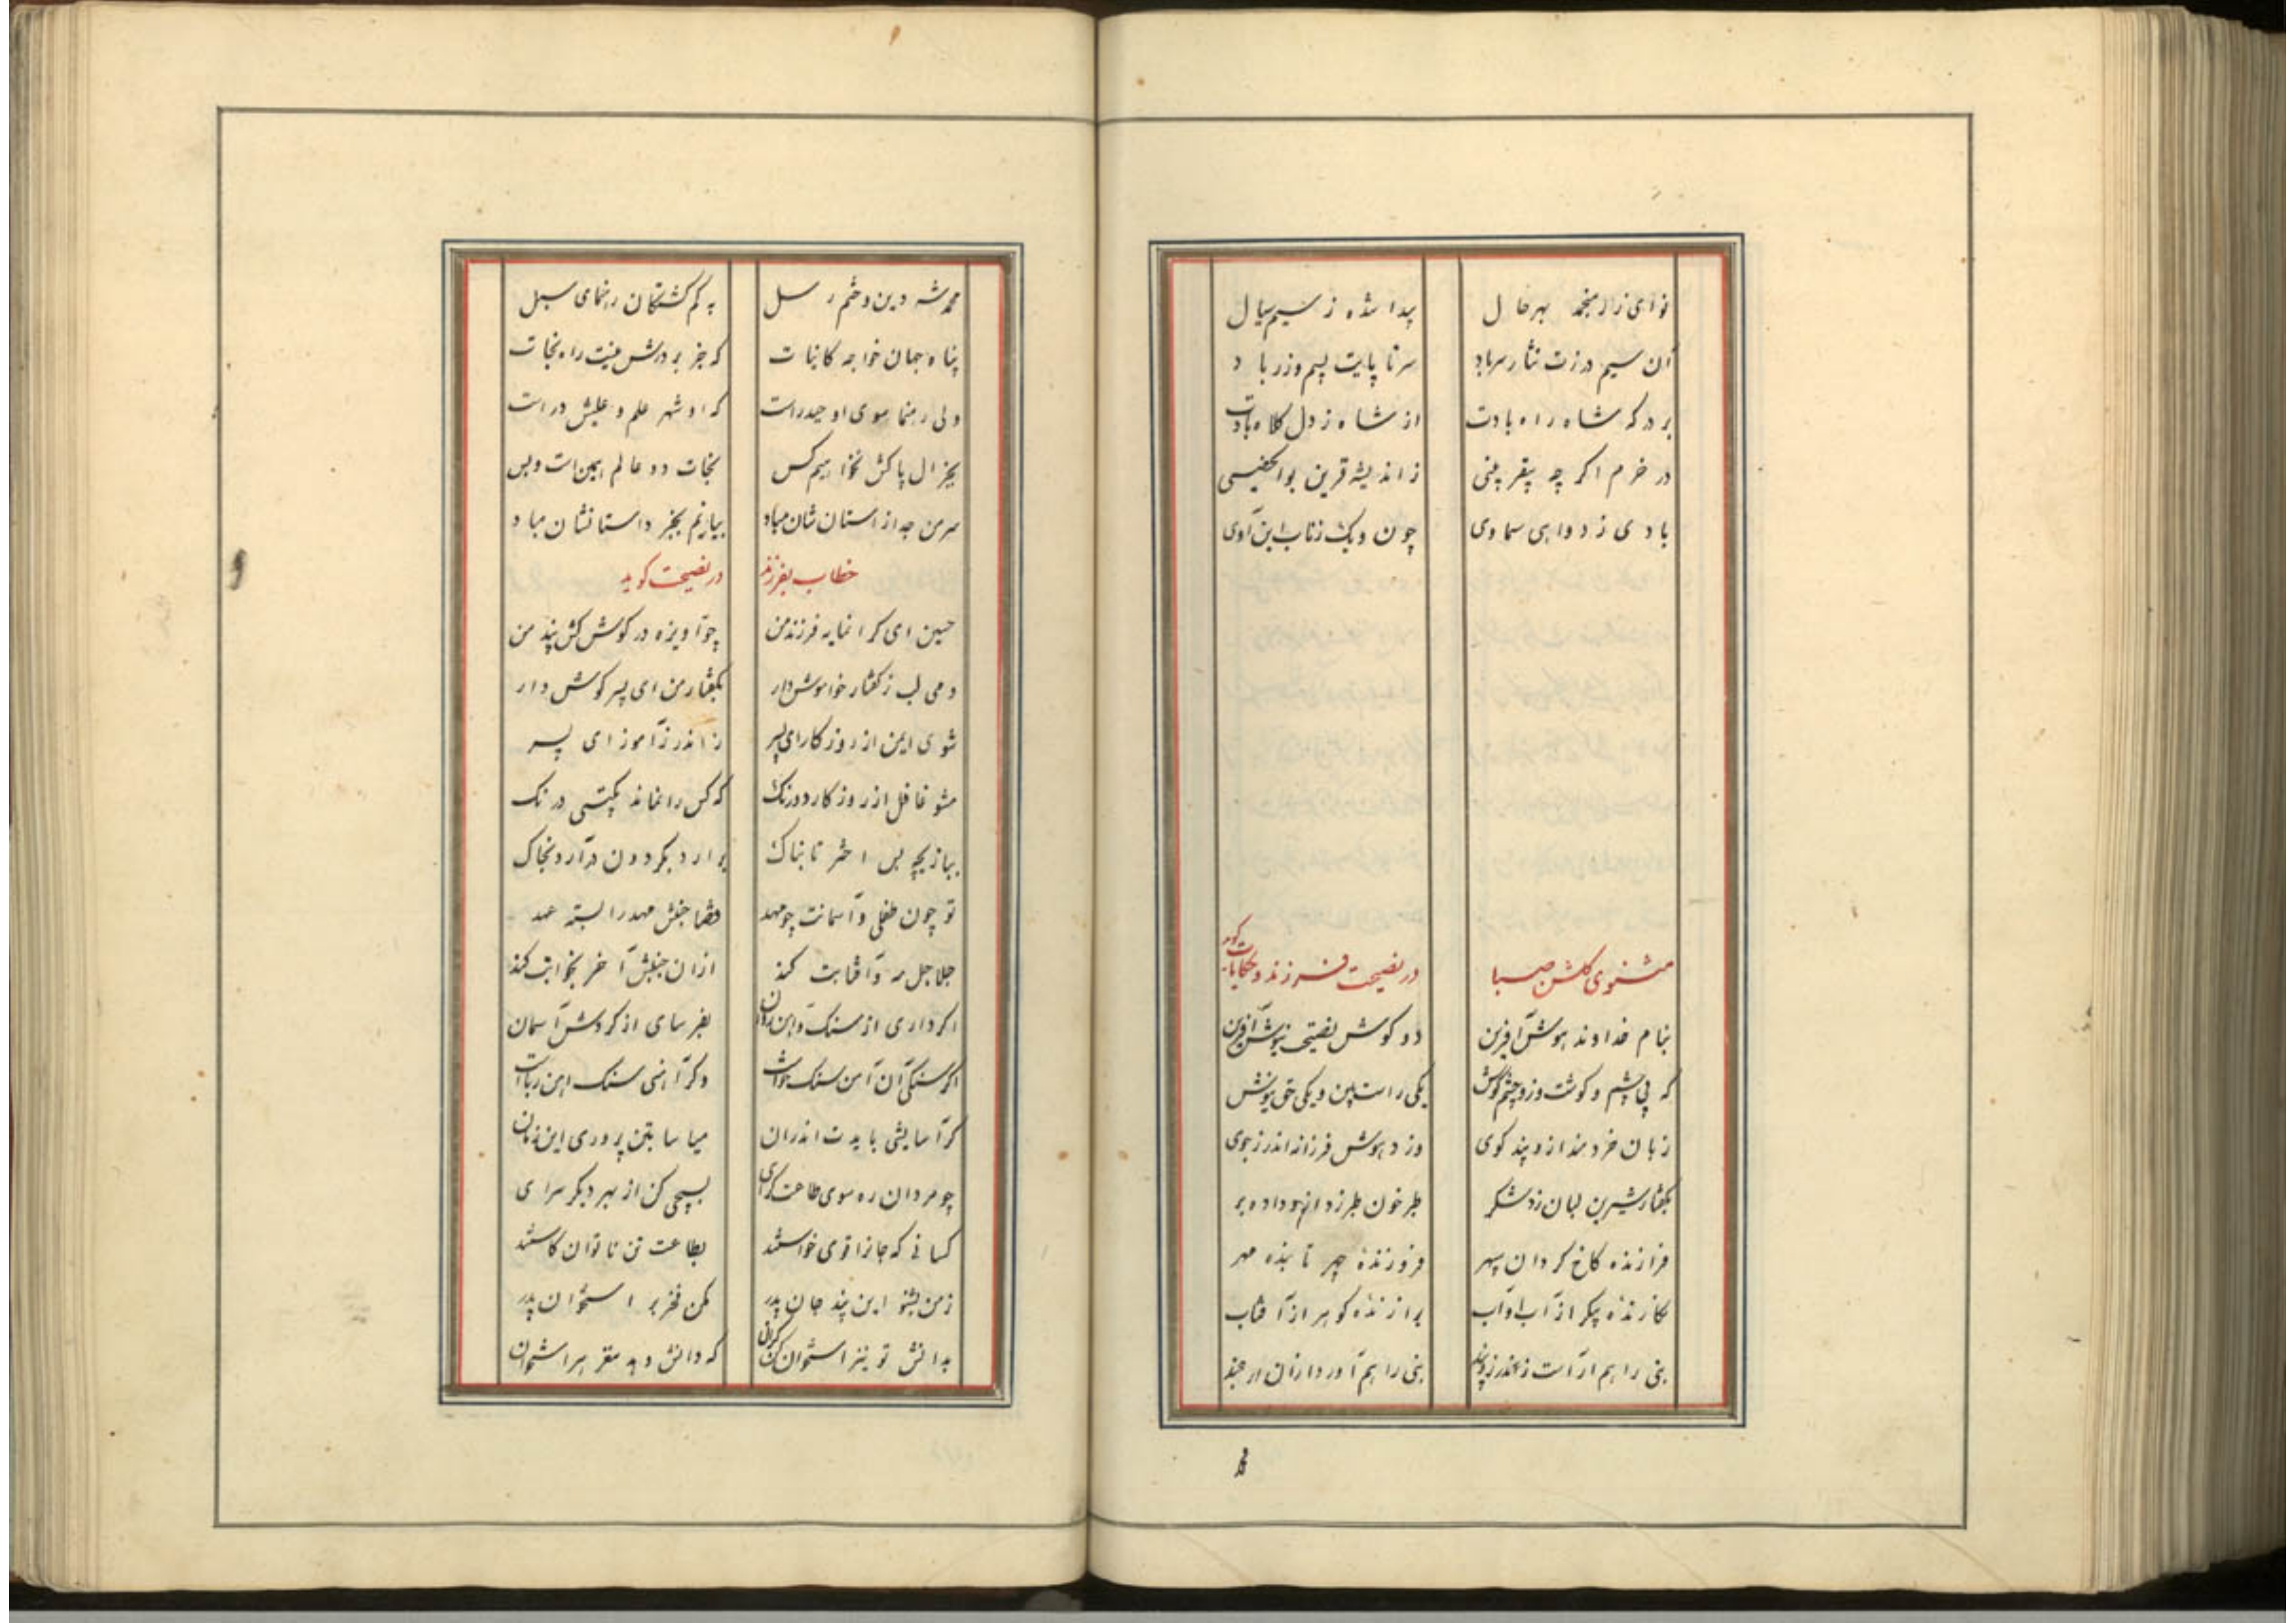 نوای زار منجمد بهر حال پیدا شده ز سیم سیال
آن سیم وزت نثار سر باد سر تا پایت بسیم وزر باد
بر درکه شاه راه بادت از شاه ز دل کلاه بادت
در خرم اکر چه بیقرینی ز اندیشه قرین
بادی ز دواهی سماوی چون ابن آوی
مثنوی کلشن صبا در نصیحت فرزند و حکایات کوید
بنام خداوند هوش آفرین دو کوش نصیحت نیوش آفرین
که بی چشم و کوشت وزو چشم و کوش یکی راست بین و یکی حق نیوش
زبان خردمند ازو پند کوی وزو هوش فرزانه اندرز جوی
بکفتار شیرین لبان زد شکر طبرخون طبرزد ازو داده بر
فرازنده کاخ کردان سپهر فروزندهٔ چهر تابنده مهر
نکارندهٔ پیکر از آب و آب برازندهٔ کوهر از آفتاب
بنی را هم آراست ز اندرز و پند بنی را هم آورد ازان ارجمند
محمد شه دین و ختم رسل به کم کشتکان رهنمای سبل
پناه جهان خواجه کاینات که جز بر درش نیست راه نجات
ولی رهنما سوی او حیدر است که او شهر علم و علیش در است
بجز آل پاکش نخواهیم کس نجات دو عالم همین است و بس
سرمن جدا ز استان شان مباد بیارنم بجز داستانشان مباد
خطاب بفرزند در نصیحت کوید
حسین ای کرانمایه فرزند من چو آویزه در کوش کش پند من
دمی لب ز کفتار خواموش دار بکفتار من ای پسر کوش دار
شوی ایمن از روزکار ای پسر ز اندرز آموز ای پسر
مشو غافل از روزکار دورنک که کس را نماند بکیتی درنک
ببازیچه بس اختر تابناک برارد بکردون درآرد بخاک
تو چون طفلی و آسمانت چو مهد قضا جنبش مهد را بسته عهد
جلاجل مه و آفتابت کند ازان جنبش آخر بخوابت کند
اکر داری از سنک و آهن روان بفرسای از کردش آسمان
اکر سنکی آن آهن سنک خواست وکر آهنی سنک آهن رباست
کر آسایشی بایدت اندران میاسا بتن پروری این زمان
چو مردان ره سوی طاعت کرای بسیچی کن از بهر دیکر سرای
کسانی که جانرا قوی خواستند بطاعت تن ناتوان کاستند
ز من بشنو این پند جان پدر مکن فخر بر استخوان پدر
بدانش تو نیز استخوان کن کران که دانش دهد مغز بر استخوان